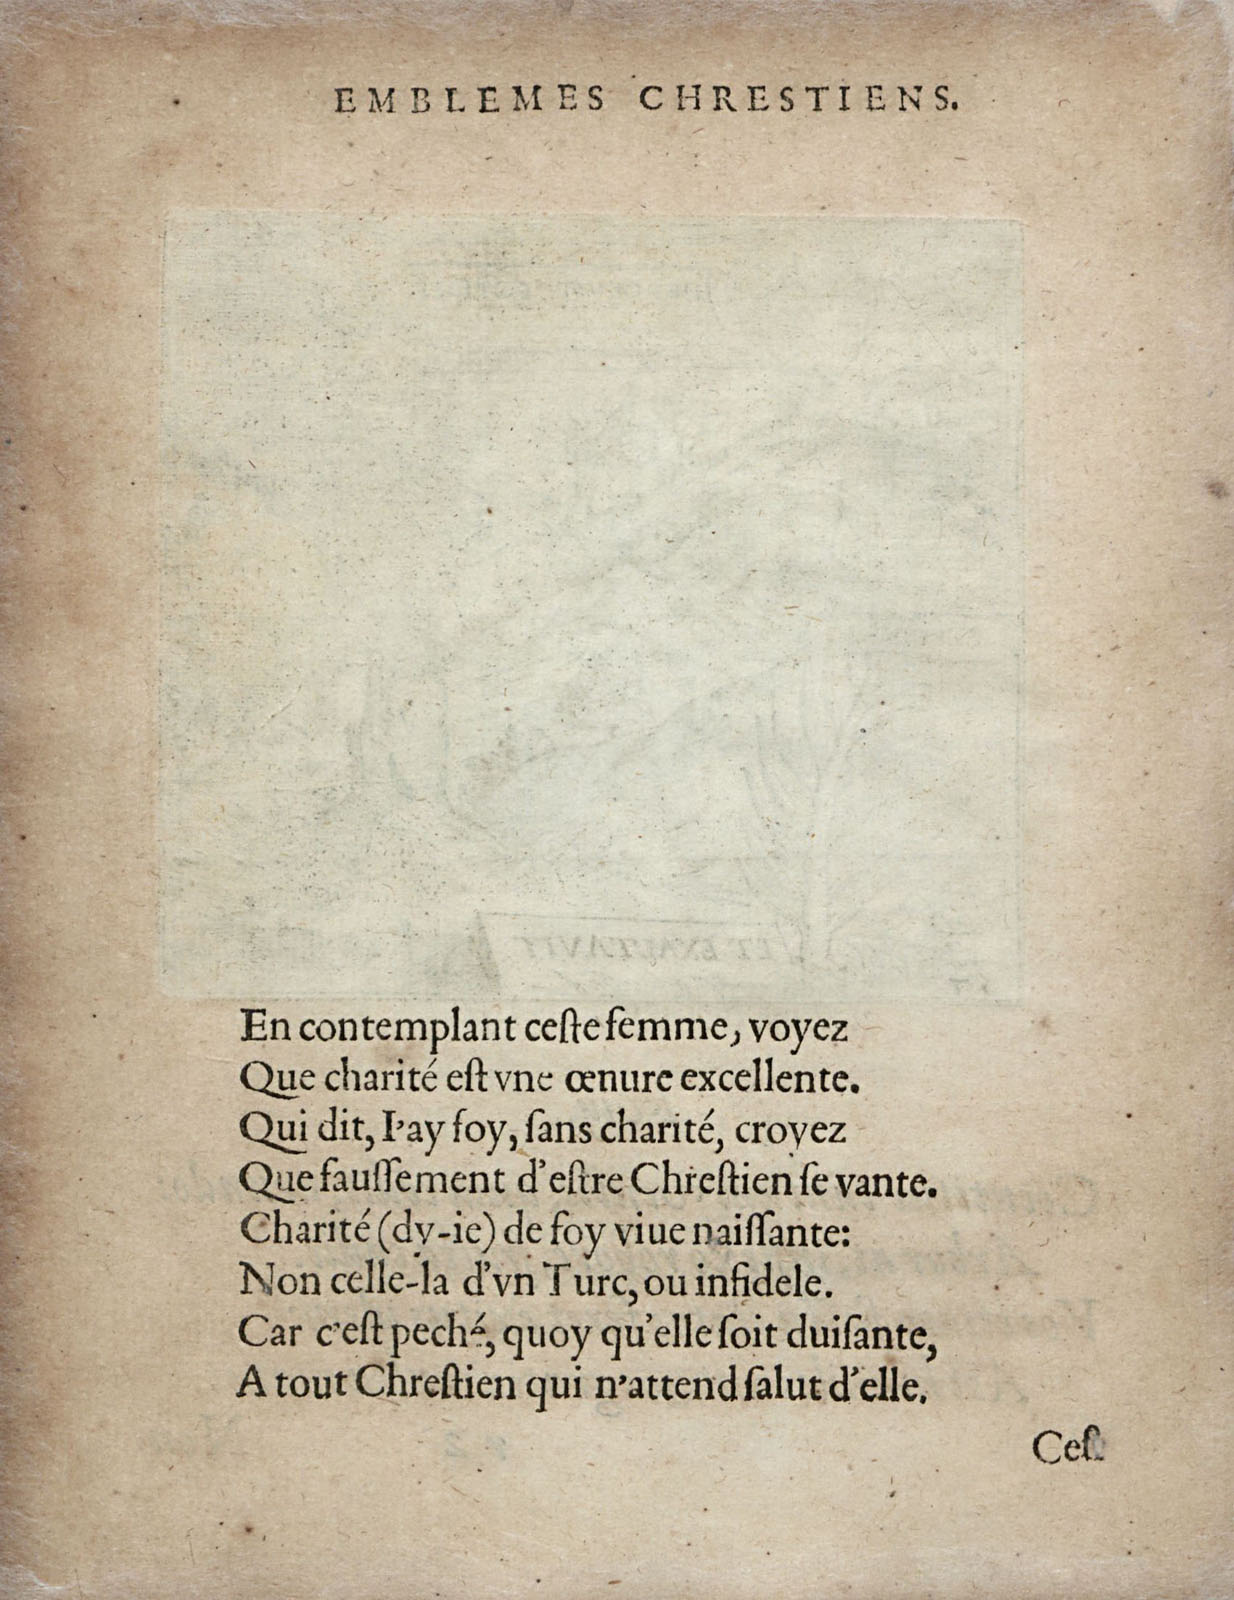 EMBLEMES CHRESTIENS.
En contemplant ceſte femme, voyez
Que charité eſt vne œnure excellente.
Qui dit, I'ay foy, ſans charité, croyez
Que fauſſement d'eſtre Chreſtien ſe vante.
Charité (dy-ie) de foy viue naiſſante:
Non celle-la d'vn Turc, ou infidele.
Car c'eſt peché, quoy qu'elle ſoit duiſante,
A tout Chreſtien qui n'attend ſalut d'elle.
Ceſ